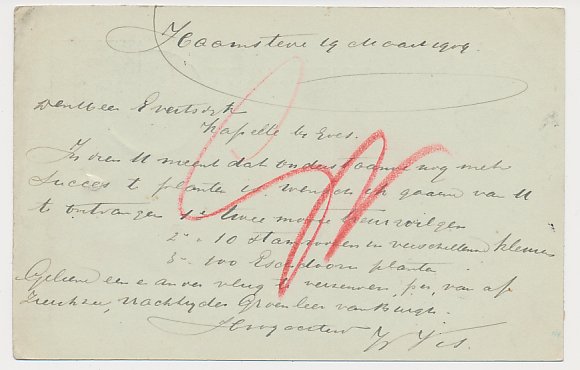 Haamstede 19 Maart 1909.
Den Heer Evertsdijk
Kapelle bij Goes.
Indien U meent dat onderstaande nog met
succes te planten is wensch ik gaarne van U
te ontvangen 1e twee mooie treurwilgen
2e " 10 Stamrozen in verschillende kleuren
3e 100 Esschdoorn planten
Gelieve een en ander vlug te verzenden, per, van af
Zierikzee, vrachtrijder Groenleer van Burgh.
Hoogachtend